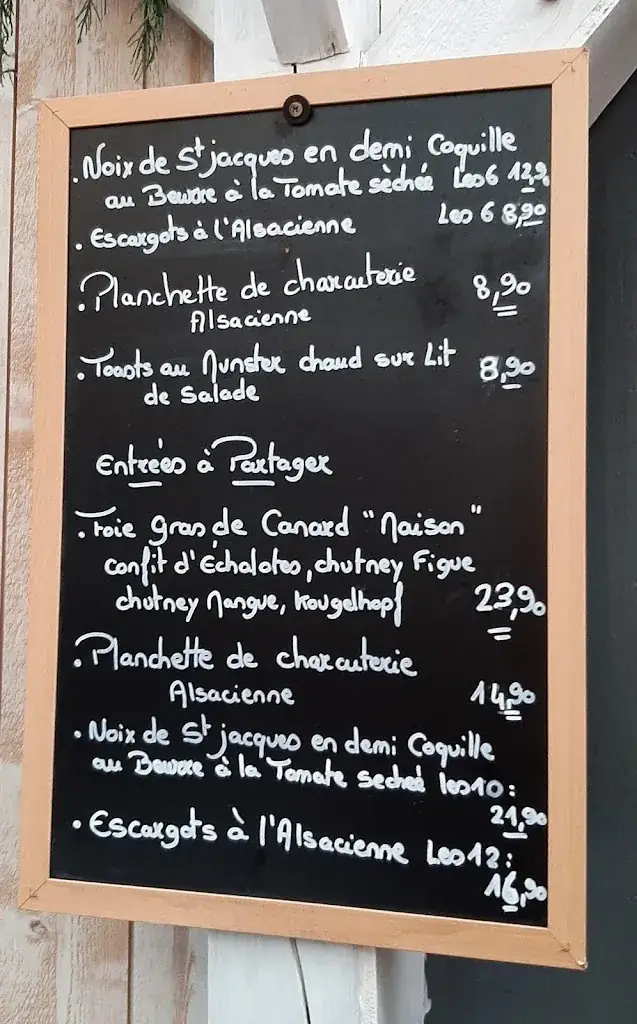 . Noix de St jacques en demi Coquille
au Beurre à la Tomate sèchée Les 6 12,90
. Escargots à l'Alsacienne Les 6 8,90
. Planchette de charcuterie 8,90
Alsacienne
. Toasts au Munster chaud sur Lit 8,90
de Salade
Entrées à Partager
. Foie gras de Canard "Maison"
confit d'Echalotes, chutney Figue
chutney Mangue, Kougelhopf 23,90
. Planchette de charcuterie
Alsacienne 14,90
. Noix de St jacques en demi Coquille
au Beurre à la Tomate seché les 10 :
21,90
. Escargots à l'Alsacienne Les 12 :
16,90